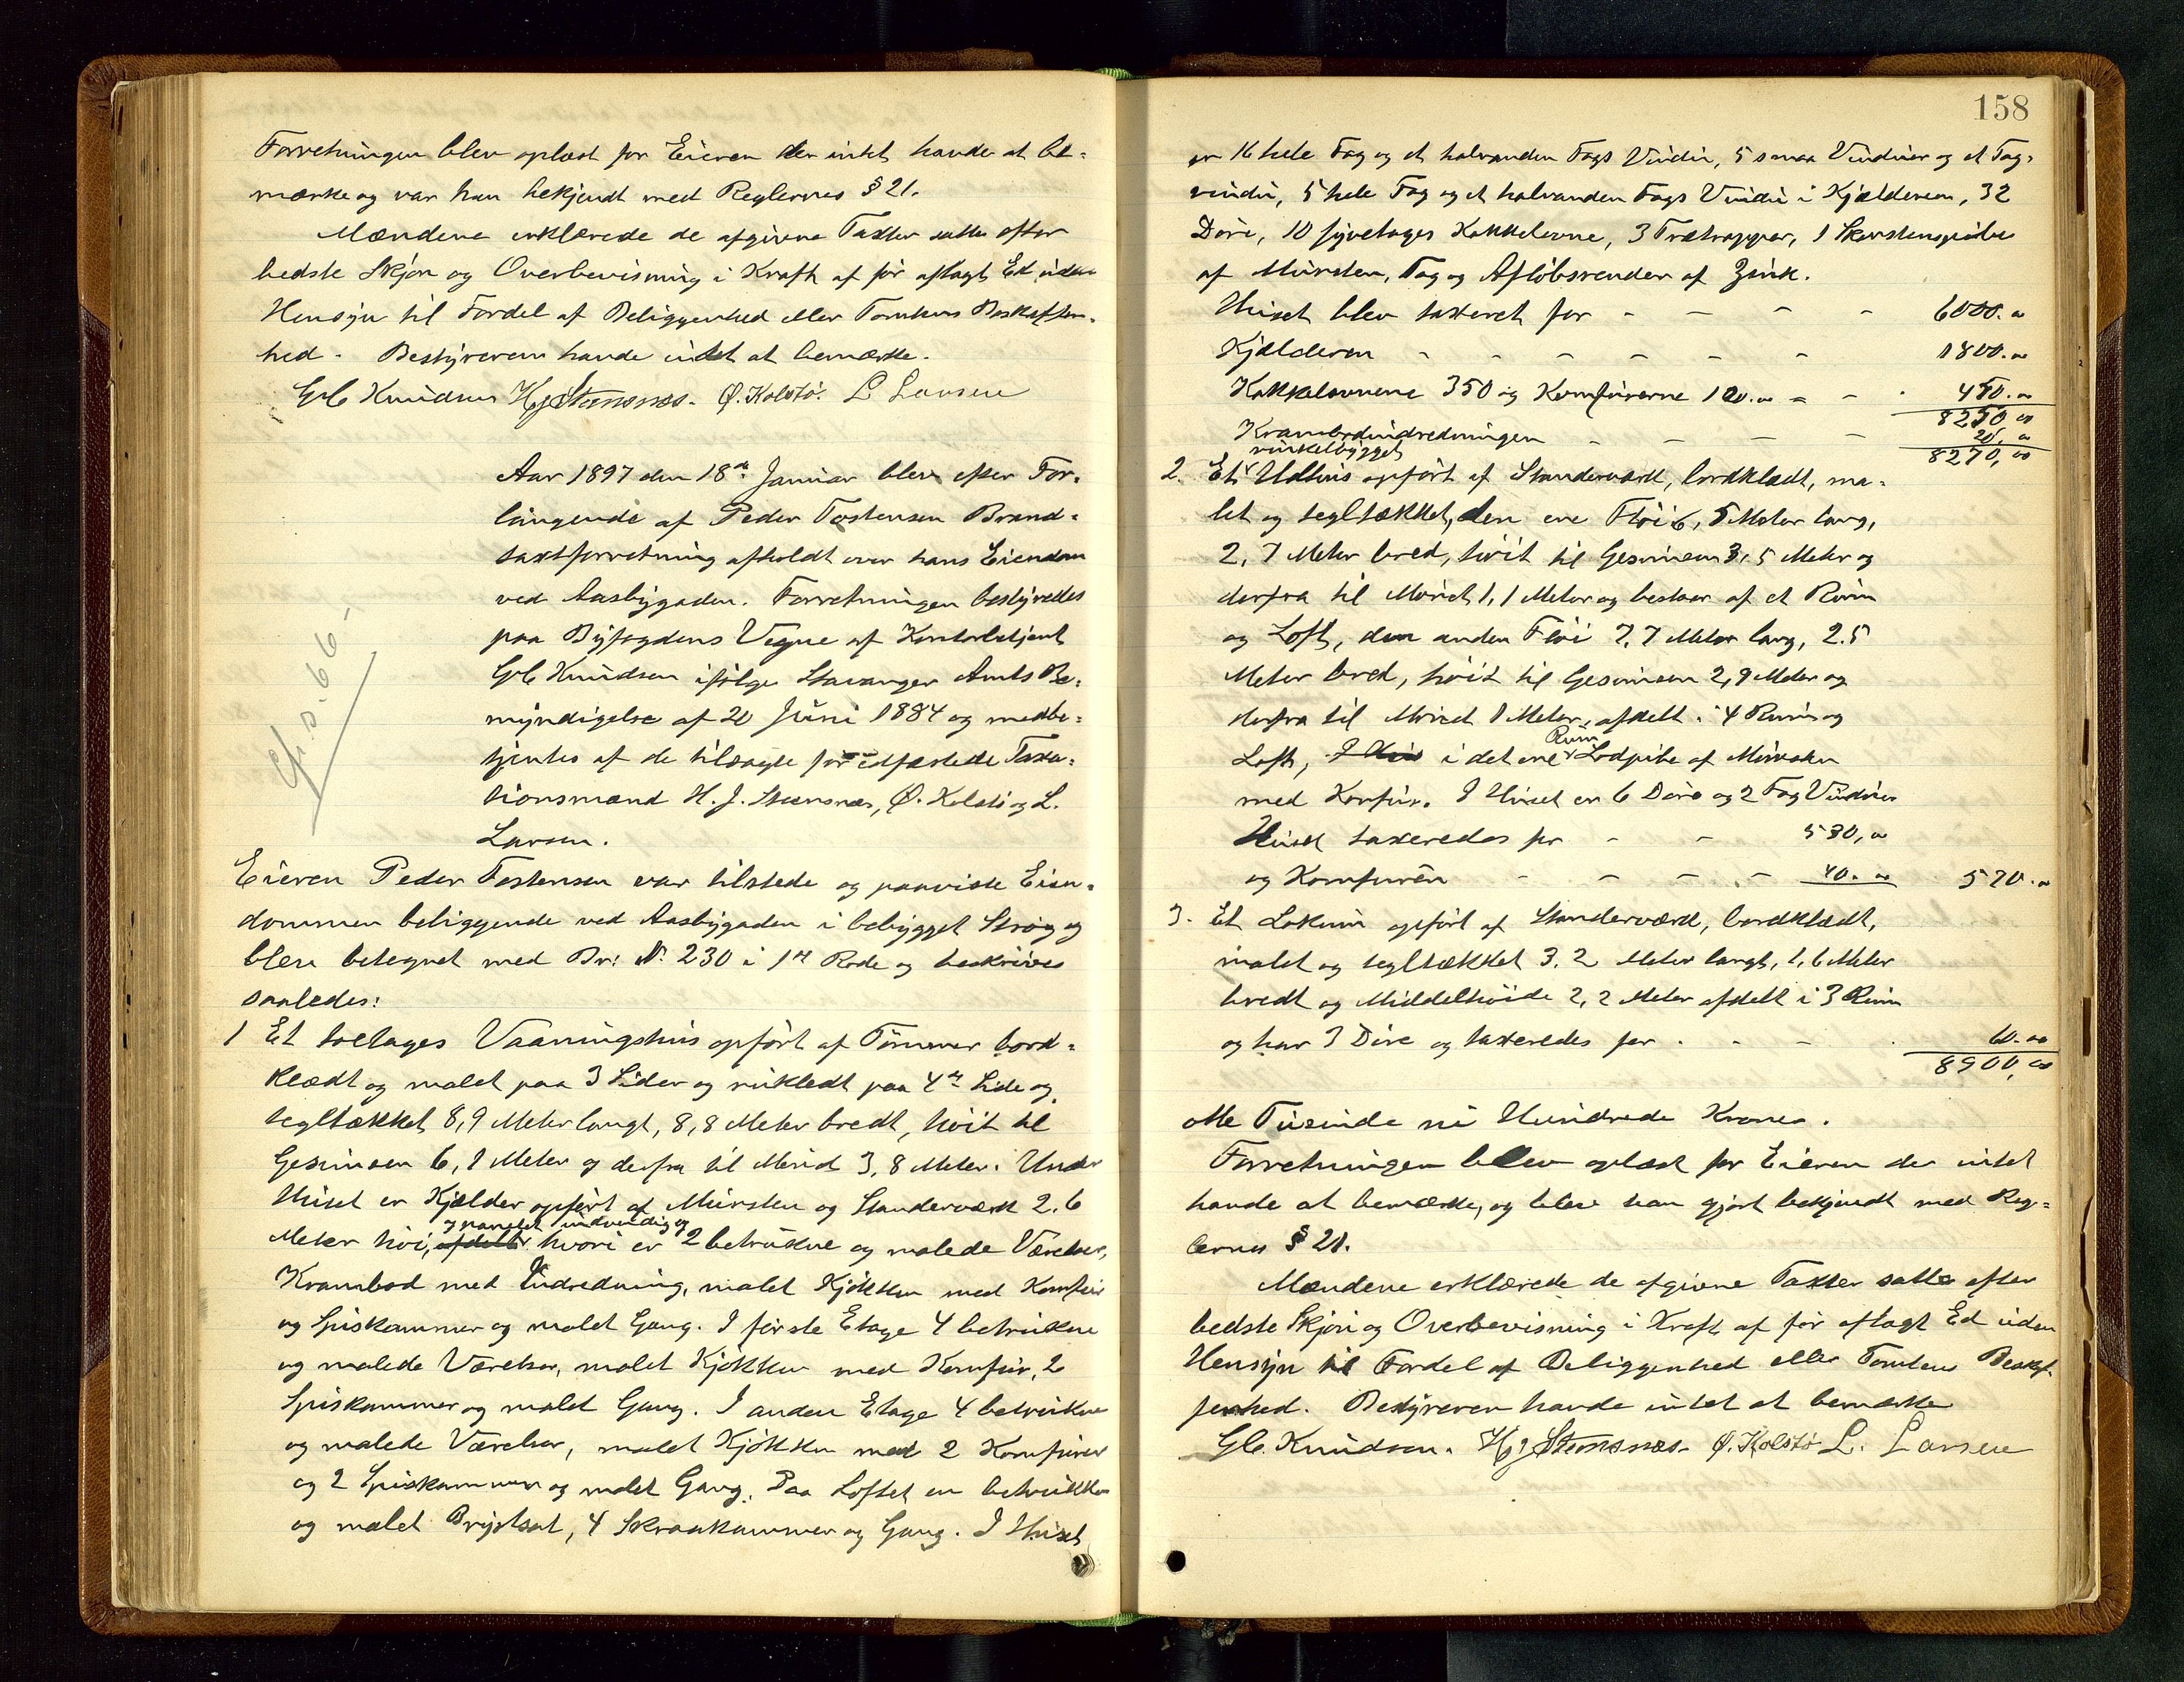 Forretningen blev oplæst for Eieren der intet havde at be-
mærke og var han bekjendt med Reglernes § 21.
Mændene erklærede de afgivne Taxter satte efter
bedste Skjøn og Overbevisning i Kraft af før aflagt Ed uden
Hensyn til Fordel af Beliggenhed eller Tomtens Beskaffen-
hed. Bestyreren havde intet at bemærke.
Knudsen HJ Stensnæs. Ø. Kolstø. L Larsen
Aar 1897 den 18de Januar blev efter For-
langende af Peder Tostensen Brand-
taxtforretning afholdt over hans Eiendom
ved Aasbygaden. Forretningen bestyredes
paa Byfogdens Vegne af Kontorbetjent
Knudsen ifølge Stavanger Amts Be-
myndigelse af 20 Juni 1884 og medbe-
tjentes af de tilsagte før edfæstede Taxa-
tionsmænd H. J. Steensnæs, Ø. Kolstø og L.
Larsen.
s. 66
Eieren Peder Tostensen var tilstede og paaviste Eien-
dommen beliggende ved Aasbygaden i bebygget Strøg og
blev betegnet med Br: N. 230 i 1ste Rode og beskrives
saaledes:
1 Et toetages Vaaningshus opført af Tømmer bord-
klædt og malet paa 3 Sider og rukledt paa 4de Side og
tegltækket 8,9 Meter langt, 8,8 Meter bredt, høit til
Gesimsen 6,1 Meter og derfra til Mønet 3,8 Meter. Under
Huset er Kjælder opført af Mursten og Standerværk 2.6
og panelet indvendig og
Meter høi, afdelt hvori er 2 betrukne og malede Værelser,
Krambod med Indredning, malet Kjøkken med Komfur
og Spiskammer og malet Gang. I første Etage 4 betrukne
og malede Værelser, malet Kjøkken med Komfur, 2
Spiskammer og malet Gang. I anden Etage 4 betrukne
og malede Værelser, malet Kjøkken med 2 Komfurer
og 2 Spiskammer og malet Gang. Paa Loftet en betrukken
og malet Brystsal, 4 Skraakammer og Gang. I Huset
158
er 16 hele Fag og et halvanden Fags Vindu, 5 smaa Vinduer og et Tag-
vindu, 5 hele Fag og et halvanden Fags Vindu i Kjælderen, 32
Døre, 10 fyretages Kakkelovne, 3 Trætrapper, 1 Skorstenspibe
af Mursten, Tag og Afløbsrender af Zink.
Huset blev taxeret for - - - - 6000.00
Kjælderen - - - - - - 1800.00
Kakkelovnene 350 og Komfurerne 100.00 - - 450.00
8250 00
Krambodindredningen - - - - 20,00
8270,00
vinkelbygget
2. Et Udhus opført af Standerværk, bordklædt, ma-
let og tegltækket, den ene Fløi 6,5 Meter lang,
2,7 Meter bred, høit til Gesimsen 3,5 Meter og
derfra til Mønet 1,1 Meter og bestaar af et Rum
og Loft, den anden Fløi 7,7 Meter lang, 2.5
Meter bred, høit til Gesimsen 2,9 Meter og
derfra til Mønet 1 Meter, afdelt i 4 Rum og
Rum
Loft, I Hus i det ene Lodpibe af Mursten
med Komfur. I Huset er 6 Døre og 2 Fag Vinduer
Huset taxeredes for - - 530,00
og Komfuren - - - - 40.00 570.00
3. Et Lokum opført af Standerværk, bordklædt,
malet og tegltækket 3,2 Meter langt, 1,6 Meter
bredt og Middelhøide 2,2 Meter afdelt i 3 Rum
og har 3 Døre og taxeredes for - - - 60.00
8900,00
otte Tusinde ni Hundrede Kroner.
Forretningen blev oplæst for Eieren der intet
havde at bemærke, og blev han gjort bekjendt med Reg-
lernes § 21.
Mændene erklærede de afgivne Taxter satte efter
bedste Skjøn og Overbevisning i Kraft af før aflagt Ed uden
Hensyn til Fordel af Beliggenhed eller Tomtens Beskaf-
fenhed. Bestyreren havde intet at bemærke
Knudsen. HJ Stensnæs. Ø. Kolstø L. Larsen